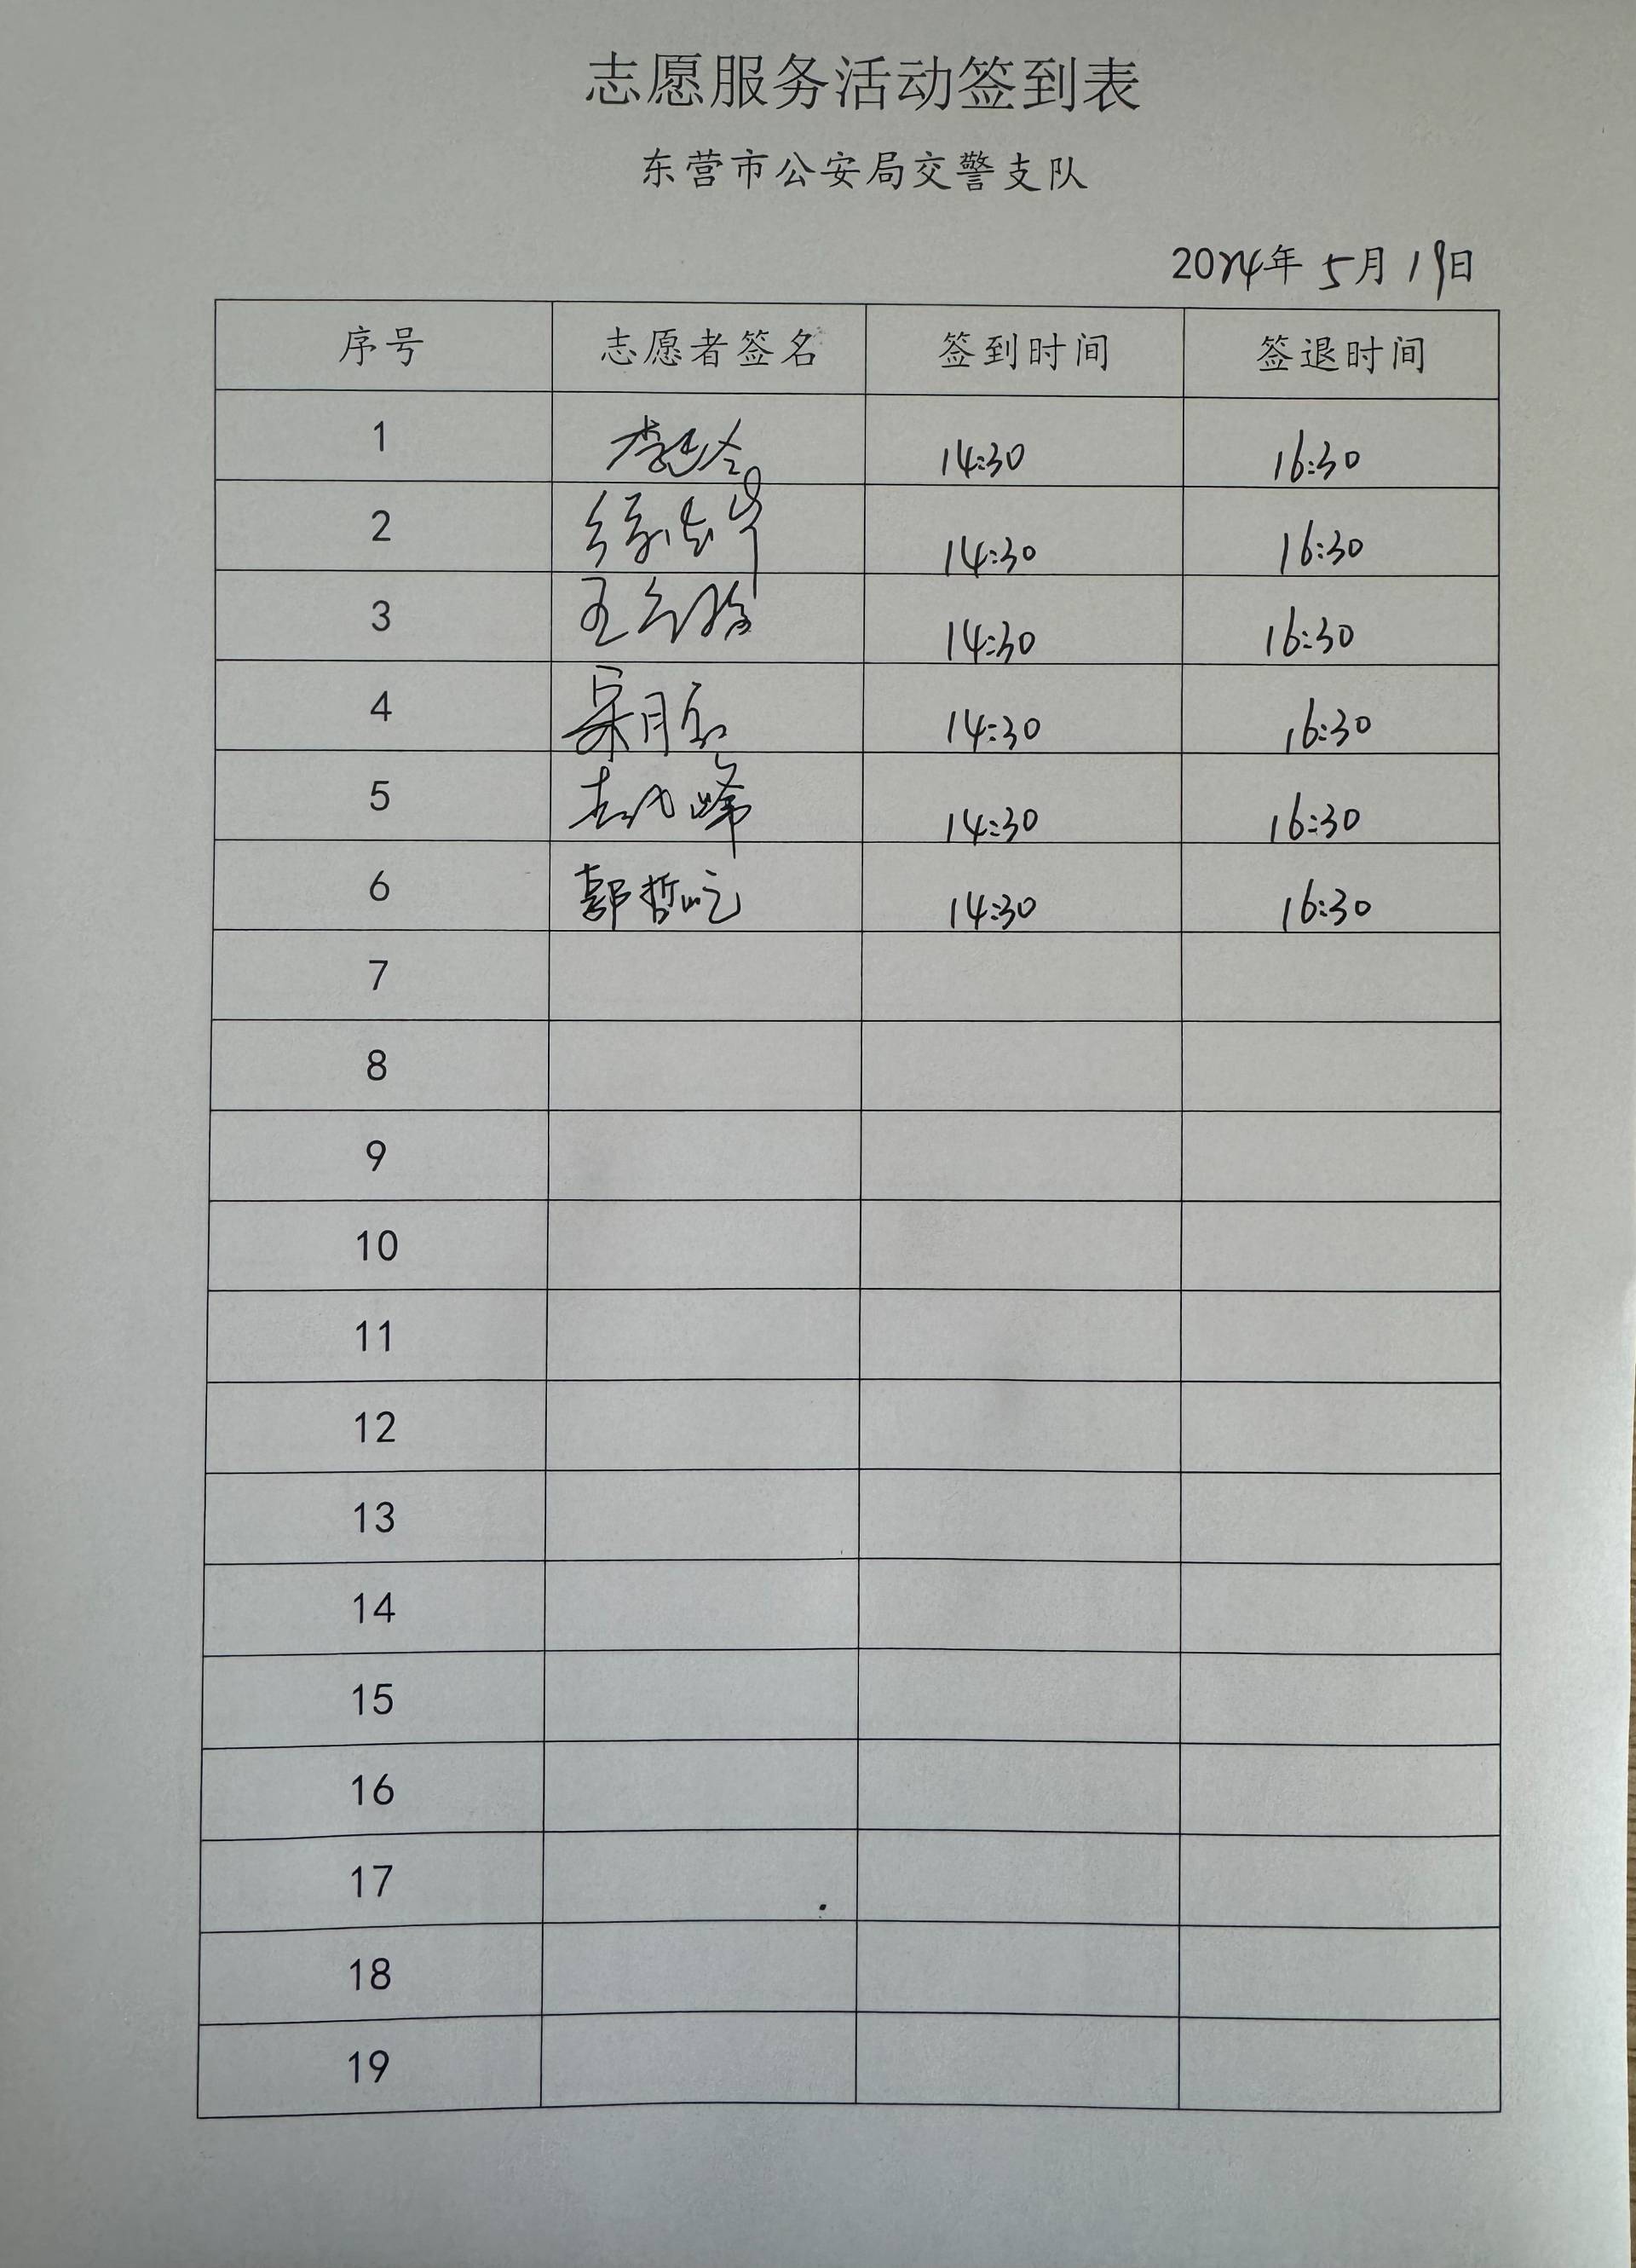 志愿服务活动签到表
东营市公安局交警支队
2024年 5月 19日
序号 志愿者签名 签到时间 签退时间
1 14:30 16:30
2 14:30 16:30
3 王 14:30 16:30
4 14:30 16:30
5 14:30 16:30
6 郭哲屹 14:30 16:30
7
8
9
10
11
12
13
14
15
16
17
18
19